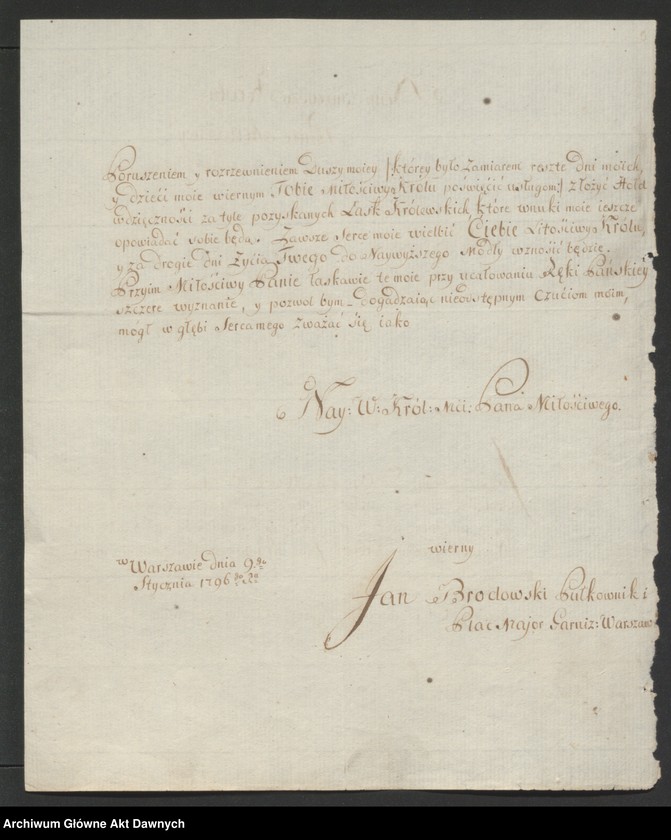 Poruszeniem y rozrzewnieniem Duszy moiey /: którey było zamiarem resztę dni moich,
y dzieci moie wiernym Tobie Miłościwy Królu poświęcić usługom :/ złożyć Hołd
wdzięczności za tyle pozyskanych Łask Królewskich które wnuki moie ieszcze
opowiadać sobie będą. Zawsze Serce moie wielbić Ciebie Litościwy Królu,
y za drogie dni Życia Twego do Naywyższego Modły wznosić będzie.
Przyim Miłościwy Panie łaskawie te moie przy ucałowaniu Ręki Pańskiey
szczere wyznanie, y pozwol bym dogadzaiąc nieodstępnym Czuciom moim,
mogł w głębi Serca mego zważać się iako
Nay: W: Król: Mci: Pana Miłościwego.
wierny
w Warszawie dnia 9.
Stycznia 1796
Jan Brodowski Pułkownik i
Plac Major Garniz: Warszaw
Archiwum Główne Akt Dawnych